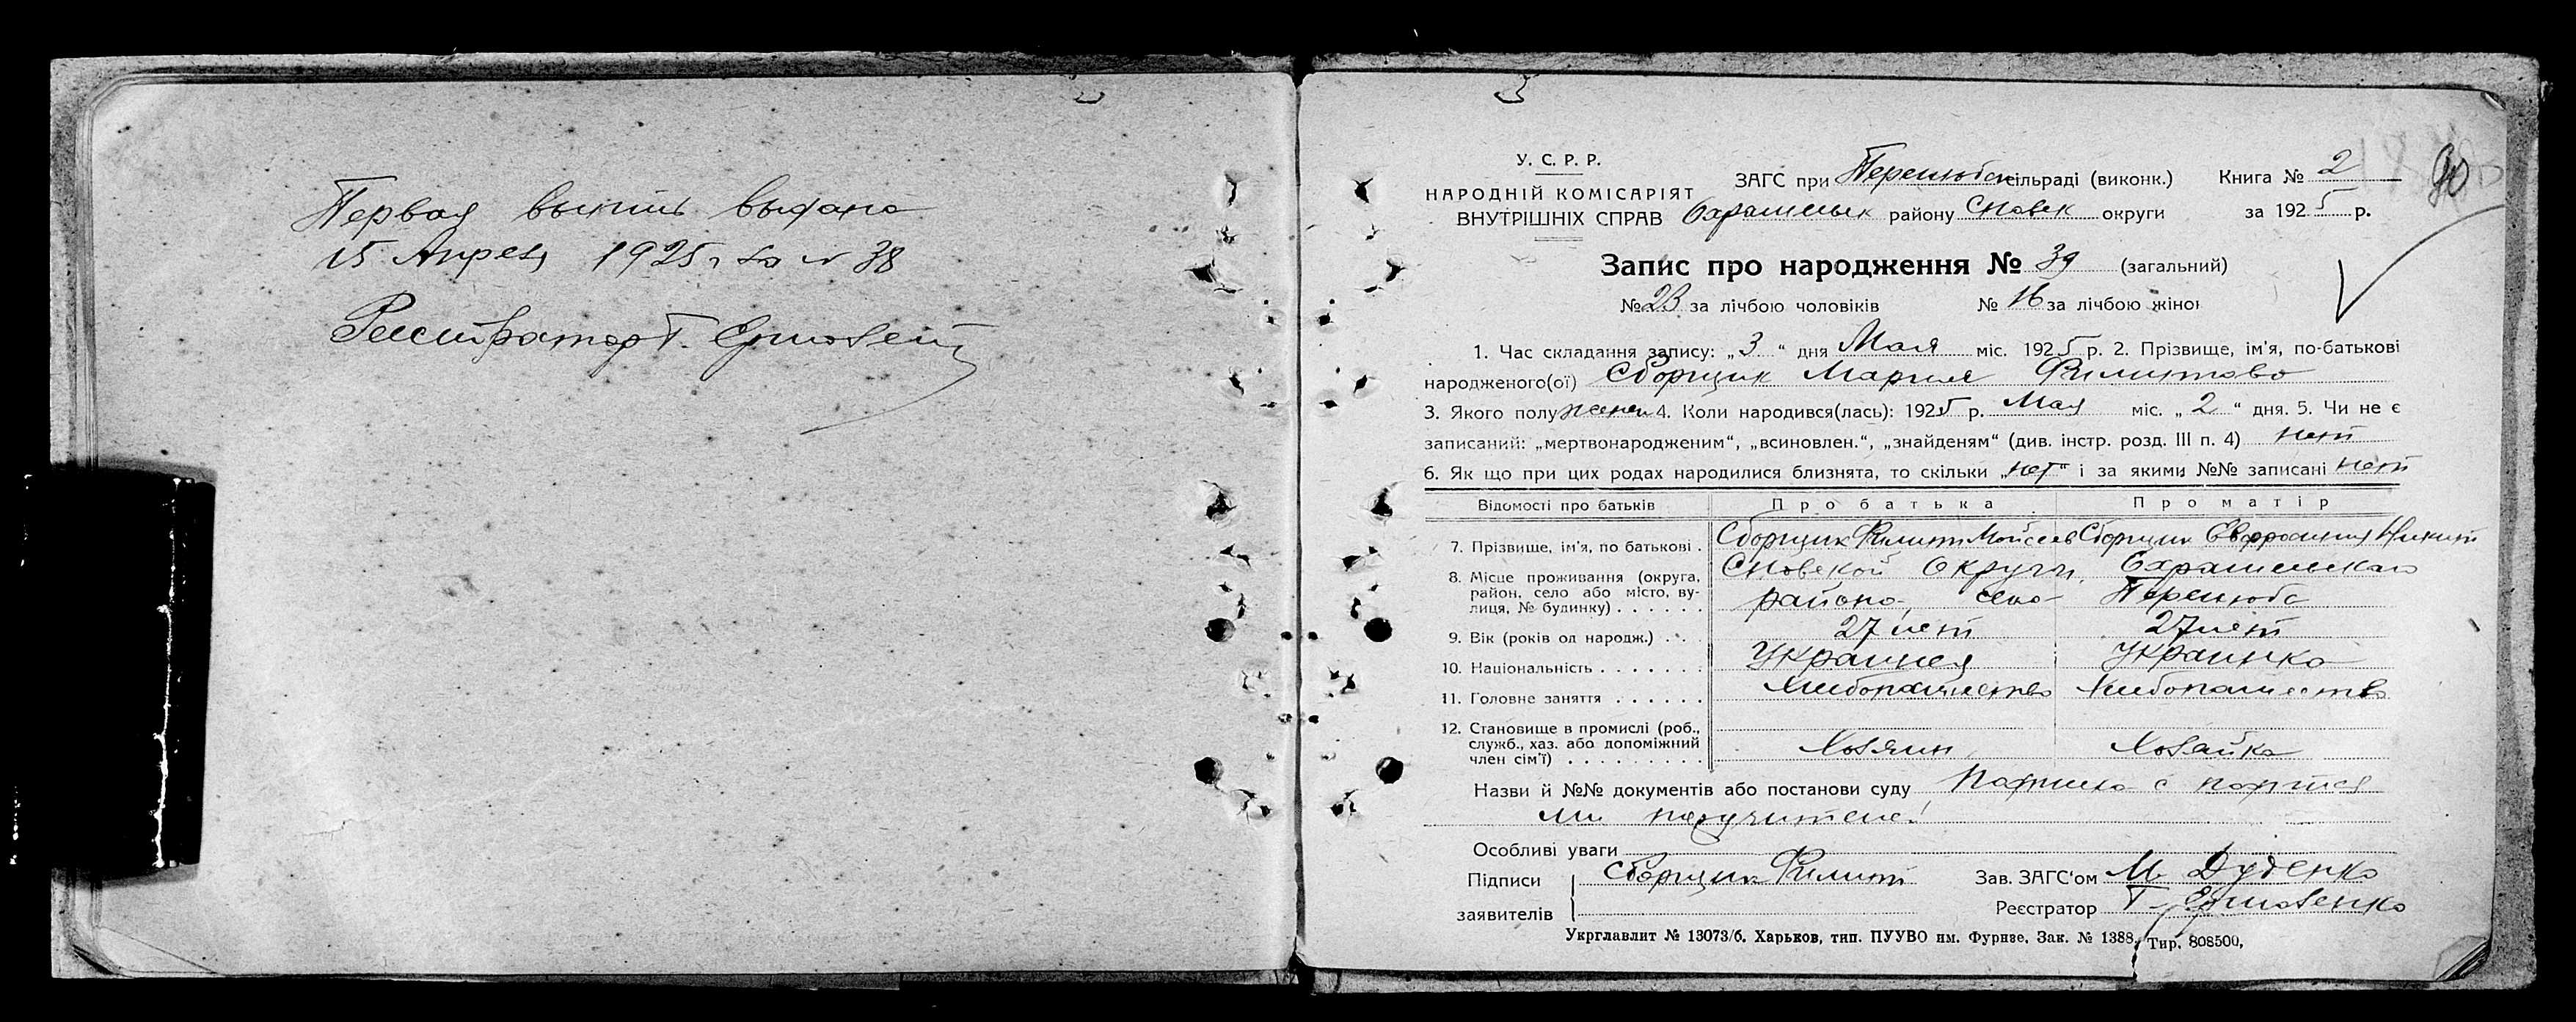 Первая выпись выдана
15 Апреля 1925 г за № 38
Регистратор Т. Ермоленко
У. С. Р. Р.
НАРОДНІЙ КОМІСАРІЯТ
ВНУТРІШНІХ СПРАВ
ЗАГС при Перелюбск сільраді (виконк.) Книга № 2
района Сновск округи за 1925 р.
90
Запис про народження № 39 (загальний)
№ 23 за лічбою чоловіків № 16 за лічбою жінок
1. Час складання запису: „3“ дня Мая міс. 1925 р. 2. Прізвище, ім'я, по-батькові
народженого(ої) Сборщик Мария Филипова
3. Якого полу женск 4. Коли народився(лась): 1925 р. Мая міс. „2“ дня. 5. Чи не є
записаний: „мертвонародженим“, „всиновлен.“, „знайденям“ (див. інстр. розд. III п. 4) нет
6. Як що при цих родах народилися близнята, то скільки „нет“ і за якими №№ записані нет
Відомості про батьків Про батька Про матір
7. Прізвище, ім'я, по батькові . Сборщик Филип Мойсеев Сборщик Евфросиния Никит
8. Місце проживання (округа, район, село або місто, вулиця, № будинку) . . . . . . Сновской Округи,
района, село Перелюб
9. Вік (років од народж.) . . . 27 лет 27 лет
10. Національність . . . . . . . Украинец Украинка
11. Головне заняття . . . . . . Хлебопашество Хлебопашество
12. Становище в промислі (роб.,
служб., хаз. або допоміжний
член сім'ї) . . . . . . . . . Хозяин Хозяйка
Назви й №№ документів або постанови суду Подписка с подпися
ми поручителей
Особливі уваги
Підписи заявителів Сборщик Филип
Зав. ЗАГС'ом М. Дуденко
Реєстратор Т. Ермоленко
Укрглавлит № 13073/б. Харьков, тип. ПУУВО им. Фурнзе. Зак. № 1388. Тир. 808500,